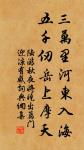 三萬里河東入海
五千仞岳上摩天
陸游秋夜將曉出籬門
迎涼有感詞典網集